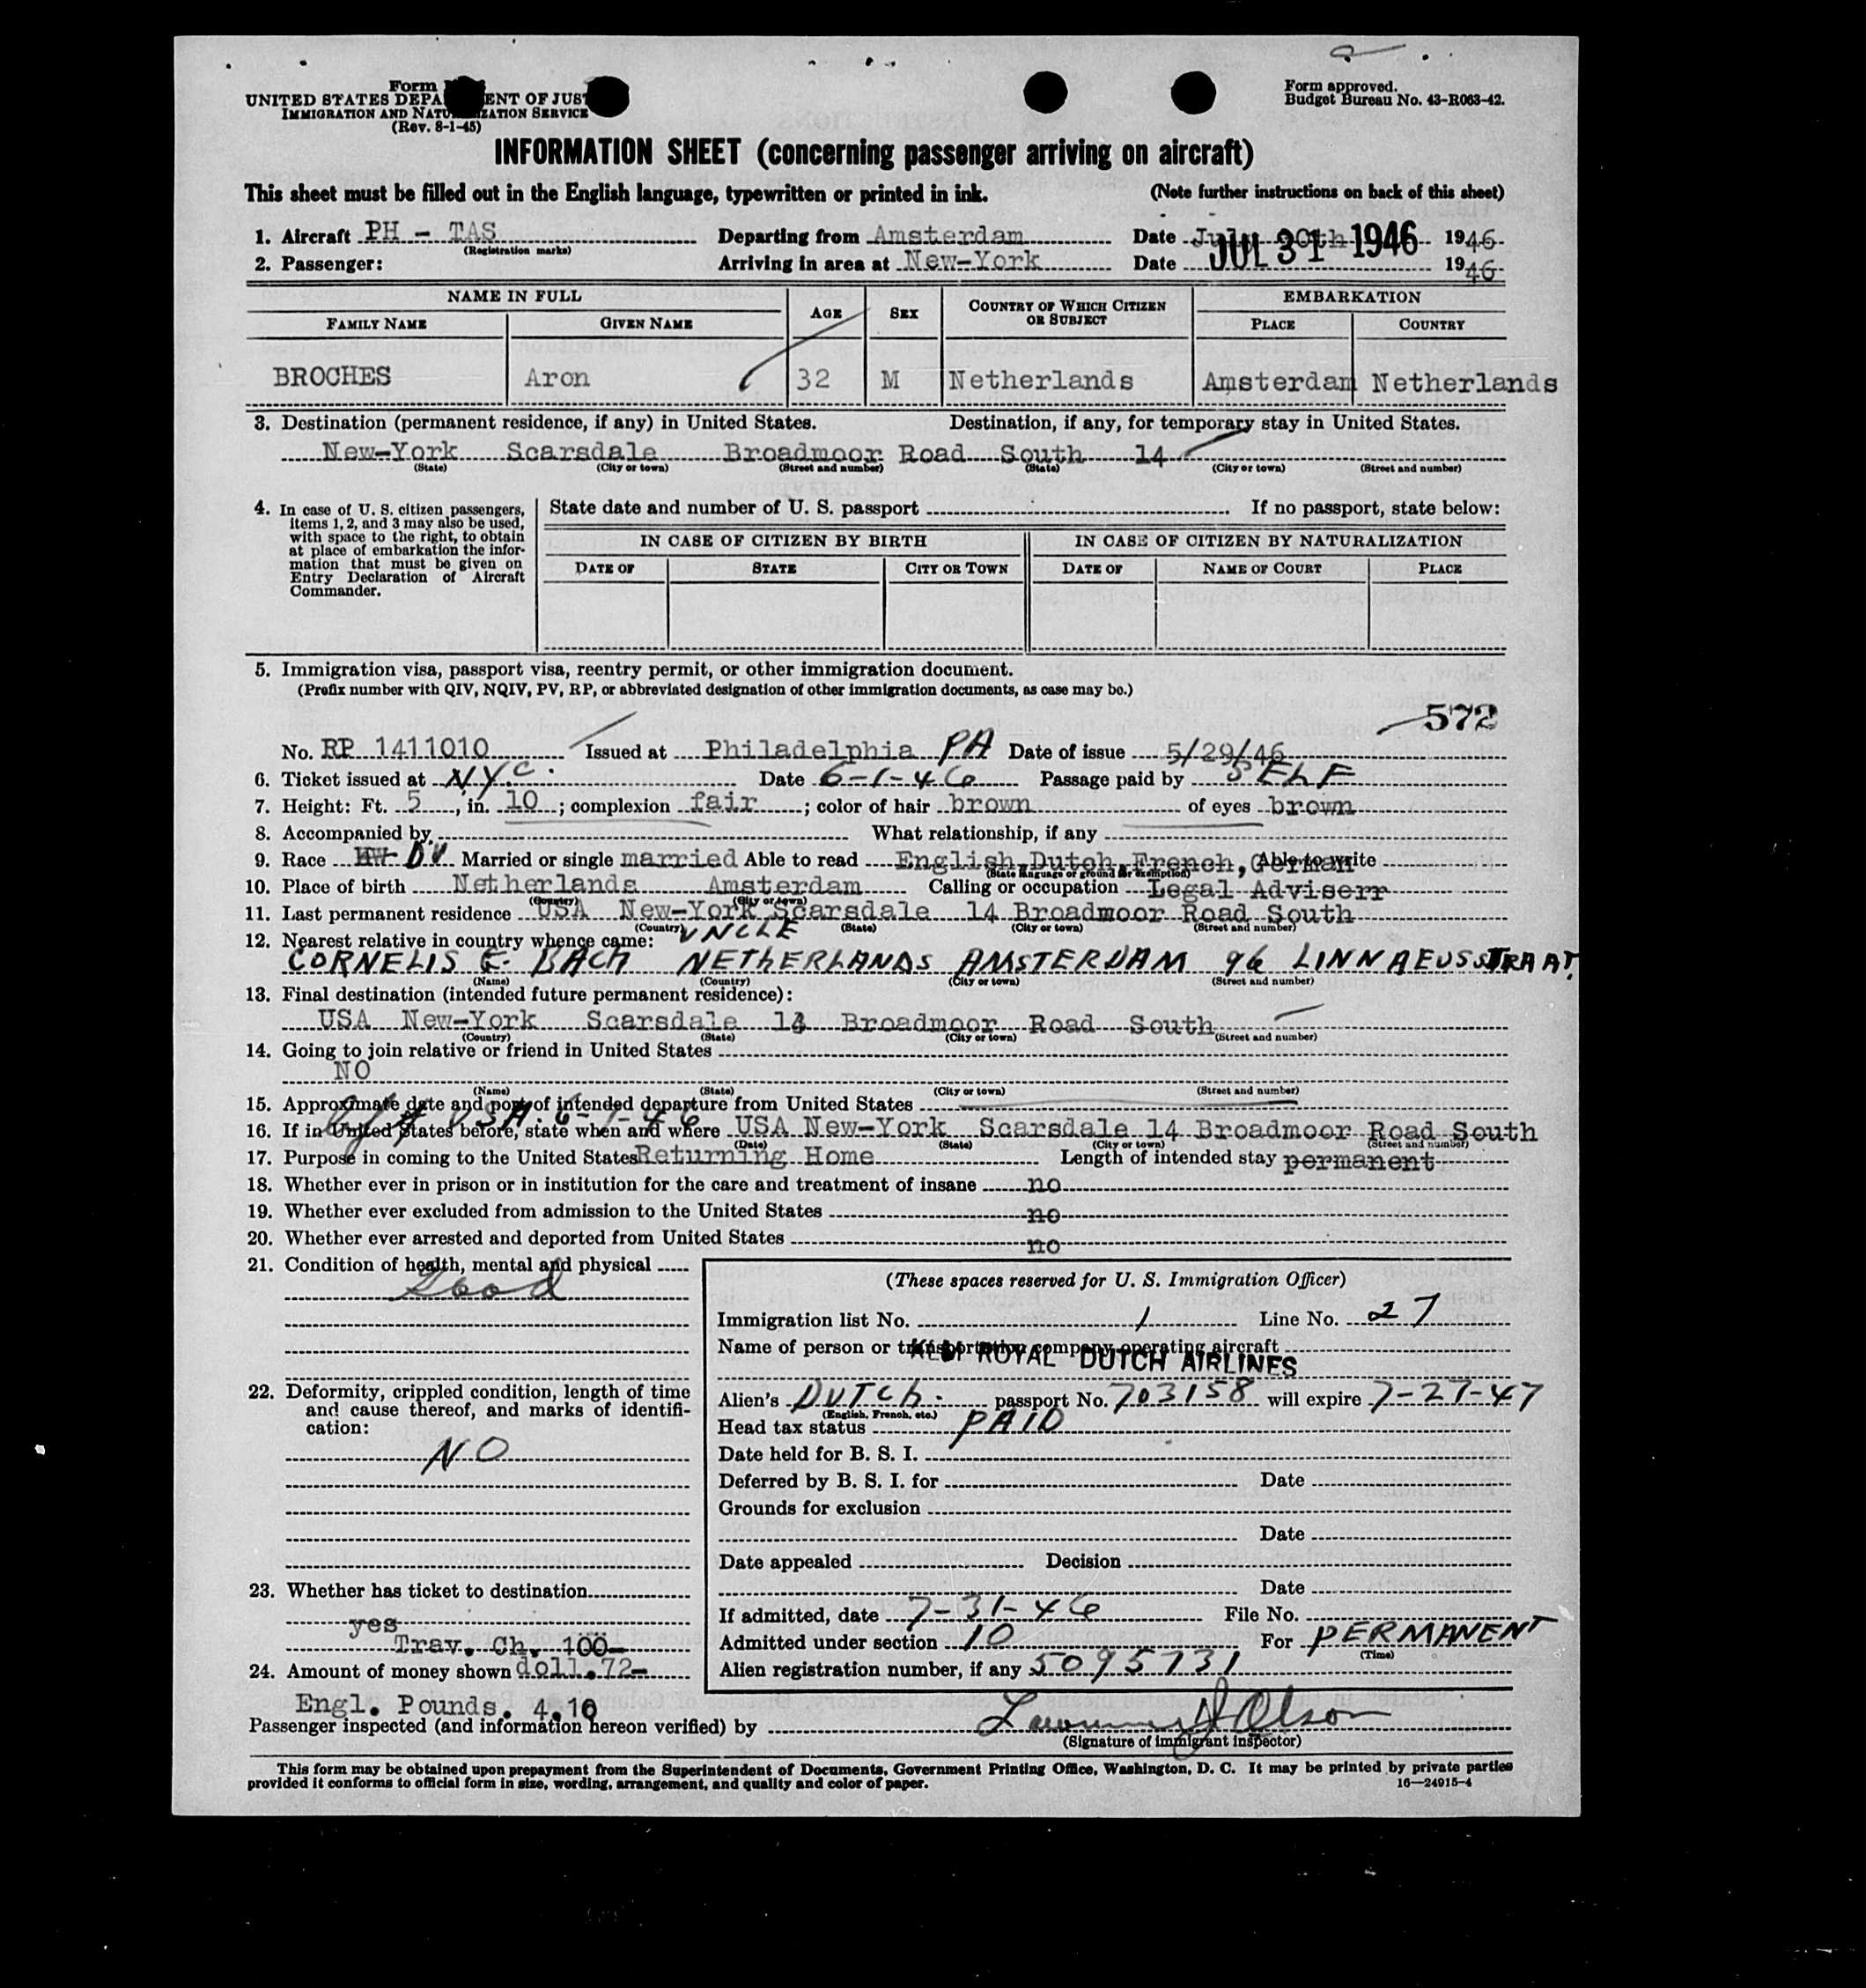 Form
UNITED STATES DEPA ENT OF JUST
IMMIGRATION AND NATU IZATION SERVICE
(Rev. 8-1-45)
Form approved.
Budget Bureau No. 43-R063-42.
INFORMATION SHEET (concerning passenger arriving on aircraft)
This sheet must be filled out in the English language, typewritten or printed in ink. (Note further instructions on back of this sheet)
1. Aircraft PH - TAS Departing from Amsterdam Date July 30th 1946
(Registration marks)
2. Passenger: Arriving in area at New-York Date JUL 31 1946 1946
NAME IN FULL AGE SEX COUNTRY OF WHICH CITIZEN OR SUBJECT EMBARKATION
FAMILY NAME GIVEN NAME PLACE COUNTRY
BROCHES Aron 32 M Netherlands Amsterdam Netherlands
3. Destination (permanent residence, if any) in United States. Destination, if any, for temporary stay in United States.
New-York Scarsdale Broadmoor Road South 14
(State) (City or town) (Street and number) (State) (City or town) (Street and number)
4. In case of U. S. citizen passengers, items 1, 2, and 3 may also be used, with space to the right, to obtain at place of embarkation the information that must be given on Entry Declaration of Aircraft Commander.
State date and number of U. S. passport If no passport, state below:
IN CASE OF CITIZEN BY BIRTH IN CASE OF CITIZEN BY NATURALIZATION
DATE OF STATE CITY OR TOWN DATE OF NAME OF COURT PLACE
5. Immigration visa, passport visa, reentry permit, or other immigration document.
(Prefix number with QIV, NQIV, PV, RP, or abbreviated designation of other immigration documents, as case may be.)
572
No. RP 1411010 Issued at Philadelphia PA Date of issue 5/29/46
6. Ticket issued at N.Y.C. Date 6-1-46 Passage paid by SELF
7. Height: Ft. 5, in. 10; complexion fair; color of hair brown of eyes brown
8. Accompanied by What relationship, if any
9. Race DU Married or single married Able to read English, Dutch, French, German Able to write
(State language or ground for exemption)
10. Place of birth Netherlands Amsterdam Calling or occupation Legal Adviserr
(Country) (City or town)
11. Last permanent residence USA New-York Scarsdale 14 Broadmoor Road South
(Country) (State) (City or town) (Street and number)
12. Nearest relative in country whence came: UNCLE
CORNELIS E. BACH NETHERLANDS AMSTERDAM 96 LINNAEUSSTRAAT.
(Name) (Country) (City or town) (Street and number)
13. Final destination (intended future permanent residence):
USA New-York Scarsdale 14 Broadmoor Road South
(Country) (State) (City or town) (Street and number)
14. Going to join relative or friend in United States
NO
(Name) (State) (City or town) (Street and number)
15. Approximate date and port of intended departure from United States
USA. 6-1-46
16. If in United States before, state when and where USA New-York Scarsdale 14 Broadmoor Road South
(Date) (State) (City or town) (Street and number)
17. Purpose in coming to the United States Returning Home Length of intended stay permanent
18. Whether ever in prison or in institution for the care and treatment of insane no
19. Whether ever excluded from admission to the United States no
20. Whether ever arrested and deported from United States no
21. Condition of health, mental and physical
Good
(These spaces reserved for U. S. Immigration Officer)
Immigration list No. 1 Line No. 27
Name of person or transportation company operating aircraft
KLM ROYAL DUTCH AIRLINES
22. Deformity, crippled condition, length of time and cause thereof, and marks of identification:
NO
Alien's DUTCH. passport No. 703158 will expire 7-27-47
(English, French, etc.)
Head tax status PAID
Date held for B. S. I.
Deferred by B. S. I. for Date
Grounds for exclusion
Date
Date appealed Decision
Date
23. Whether has ticket to destination
yes
If admitted, date 7-31-46 File No.
Admitted under section 10 For PERMANENT
(Time)
Alien registration number, if any 5095731
Trav. Ch. 100-
24. Amount of money shown doll. 72-
Engl. Pounds. 4.10
Passenger inspected (and information hereon verified) by Lawrence J Olson
(Signature of immigrant inspector)
This form may be obtained upon prepayment from the Superintendent of Documents, Government Printing Office, Washington, D. C. It may be printed by private parties
provided it conforms to official form in size, wording, arrangement, and quality and color of paper. 16—24915-4